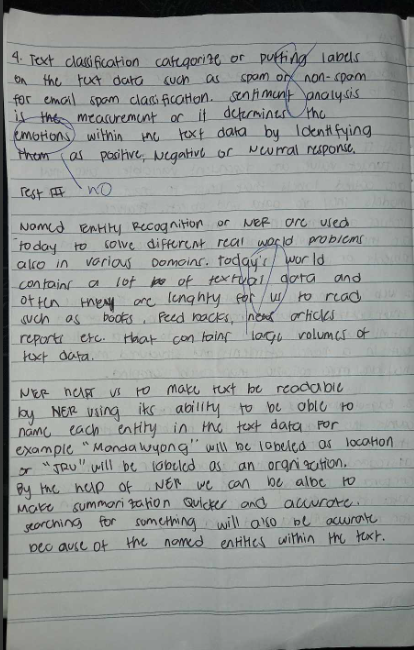 4. Text classification categorize or putting labels
on the text data such as spam or non-spam
for email spam classification. sentiment analysis
is the measurement or it determines the
emotions within the text data by Identifying
them as positive, Negative or Neutral response.
Test III
NO
Named Entity Recognition or NER are used
today to solve different real world problems
also in various Domains. today's world
contains a lot of textual data and
often they are lenghty for us to read
such as books, Feed backs, news articles
reports etc. that contains large volumes of
text data.
NER helps us to make text be readable
by NER using its ability to be able to
name each entity in the text data For
example "Mandaluyong" will be labeled as location
or "JRU" will be labeled as an orgnization.
By the help of NER we can be albe to
make summarization Quicker and accurate.
searching for something will also be accurate
because of the named entities within the text.